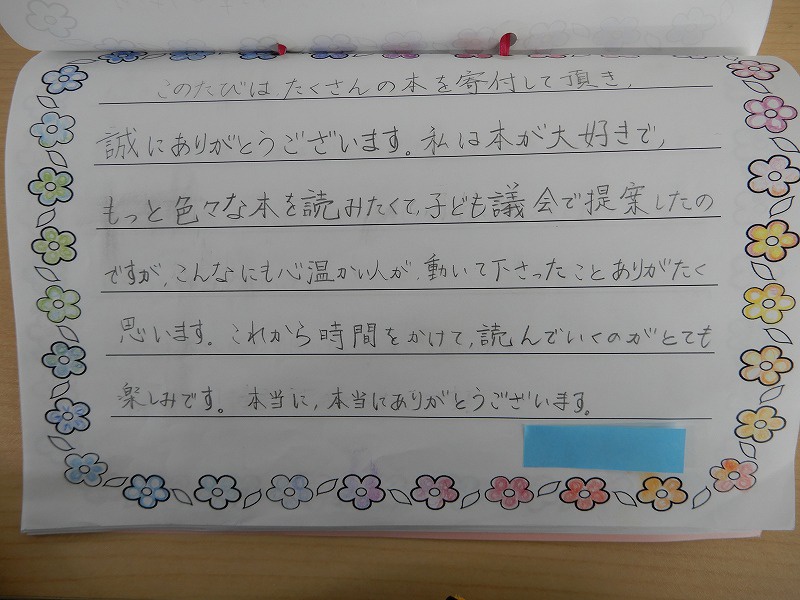 このたびは、たくさんの本を寄付して頂き、
誠にありがとうございます。私は本が大好きで、
もっと色々な本を読みたくて、子ども議会で提案したの
ですが、こんなにも心温かい人が、動いて下さったことありがたく
思います。これから時間をかけて、読んでいくのがとても
楽しみです。本当に、本当にありがとうございます。